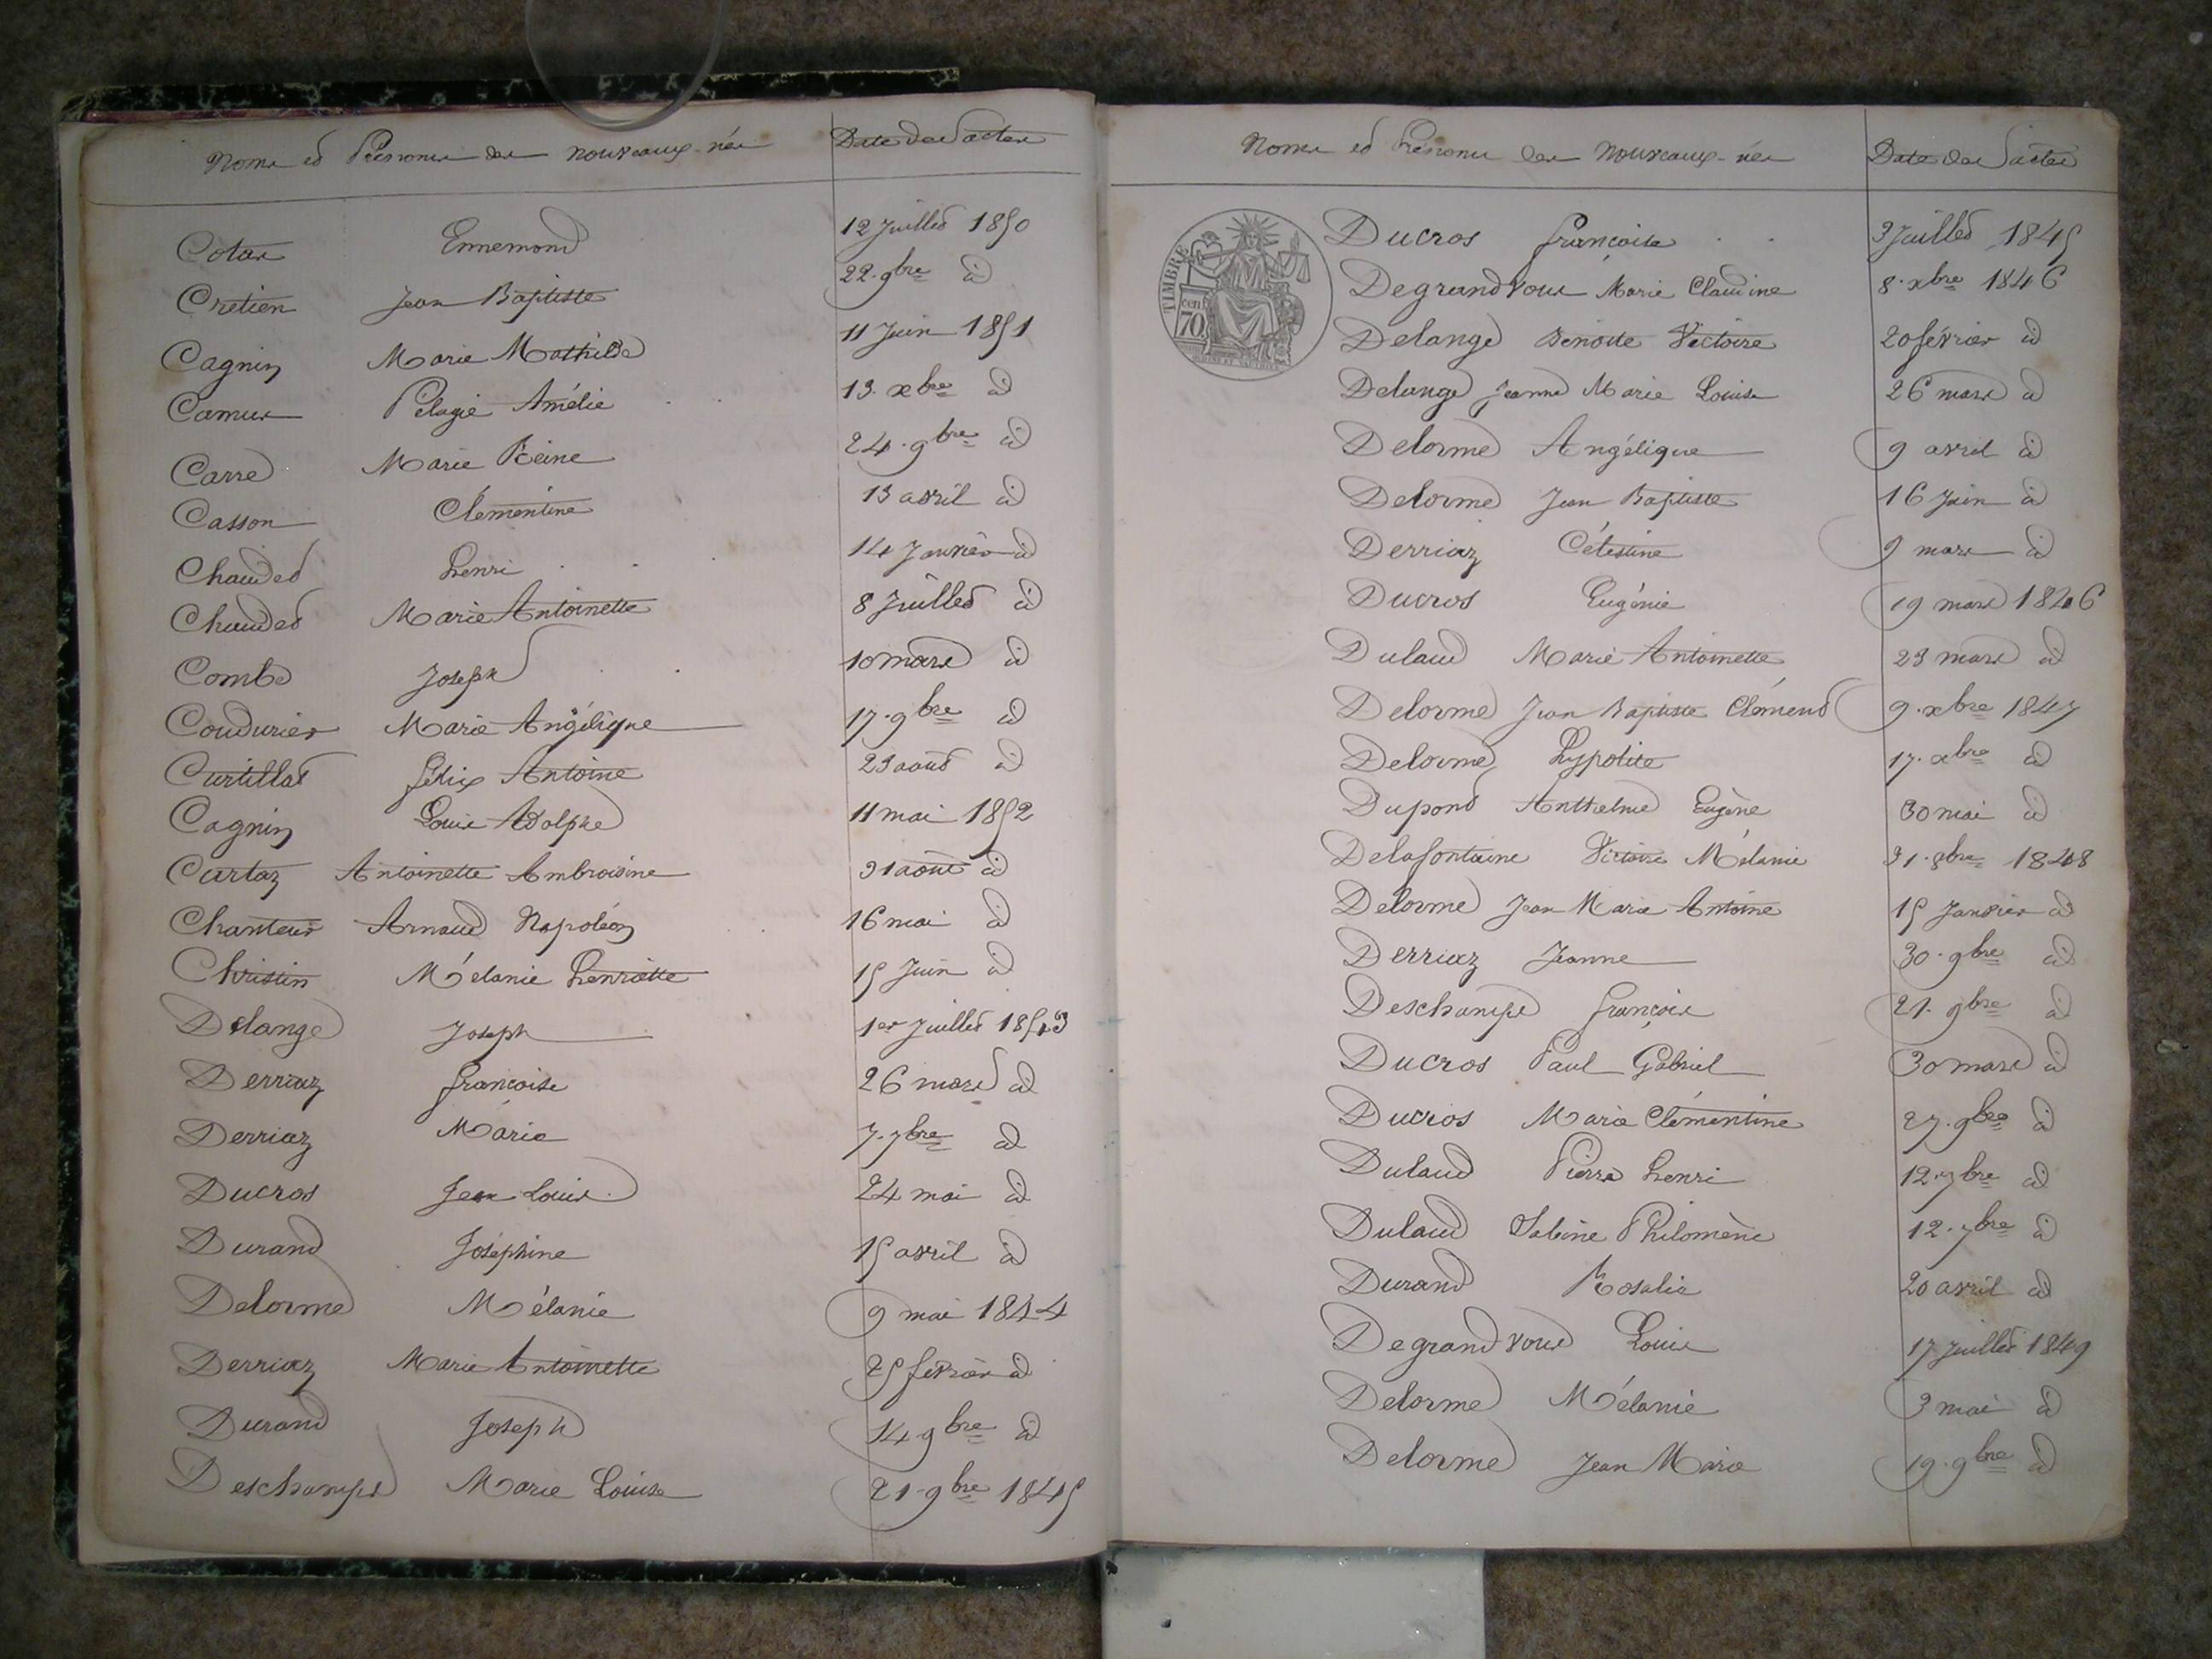 Noms et Prénoms des nouveaux-nés Date des actes
Cotar Ennemond 12 Juillet 1850
Chretien Jean Baptiste 22. 9bre id
Cagnin Marie Mathilde 11 Juin 1851
Camus Pélagie Amélie 13. xbre id
Carre Marie Reine 24. 9bre id
Casson Clémentine 13 avril id
Chaudet henri 14 Janvier id
Chaudet Marie Antoinette 8 Juillet id
Combe Joseph 10 mars id
Coudurier Marie Angélique 17. 9bre id
Curtillat félix Antoine 23 aout id
Cagnin Louis Adolphe 11 mai 1852
Curtaz Antoinette Ambroisine 31 aout id
Chanteur Arnaud Napoléon 16 mai id
Christin Mélanie henriette 15 Juin id
Delange Joseph 1er Juillet 1843
Derriaz françoise 26 mars id
Derriaz Marie 7. 7bre id
Ducros Jean Louis 24 mai id
Durand Joséphine 15 avril id
Delorme Mélanie 9 mai 1844
Derriaz Marie Antoinette 25 fevrier id
Durand Joseph 14 9bre id
Deschamps Marie Louise 21. 9bre 1845
Noms et Prénoms des Nouveaux-nés Date des actes
TIMBRE
cen
70
Ducros françoise 3 Juillet 1845
Degrandvoux Marie Claudine 8. xbre 1846
Delange Benoite Victoire 20 février id
Delange Jeanne Marie Louise 26 mars id
Delorme Angélique 9 avril id
Delorme Jean Baptiste 16 Juin id
Derriaz Célestine 9 mars id
Ducros Eugénie 19 mars 1846
Dulaud Marie Antoinette 23 mars id
Delorme Jean Baptiste Clément 9. xbre 1847
Delorme hypolite 17. xbre id
Dupont Anthelme Eugène 30 mai id
Delafontaine Victoire Mélanie 21. 8bre 1848
Delorme Jean Marie Antoine 15 Janvier id
Derriaz Jeanne 30. 9bre id
Deschamps françois 21. 9bre id
Ducros Paul Gabriel 30 mars id
Ducros Marie Clémentine 27. 9bre id
Dulaud Pierre henri 12. 7bre id
Dulaud Sabine Philomène 12. 7bre id
Durand Rosalie 20 avril id
Degrandvoux Louis 17 Juillet 1849
Delorme Mélanie 3 mai id
Delorme Jean Marie 19. 9bre id